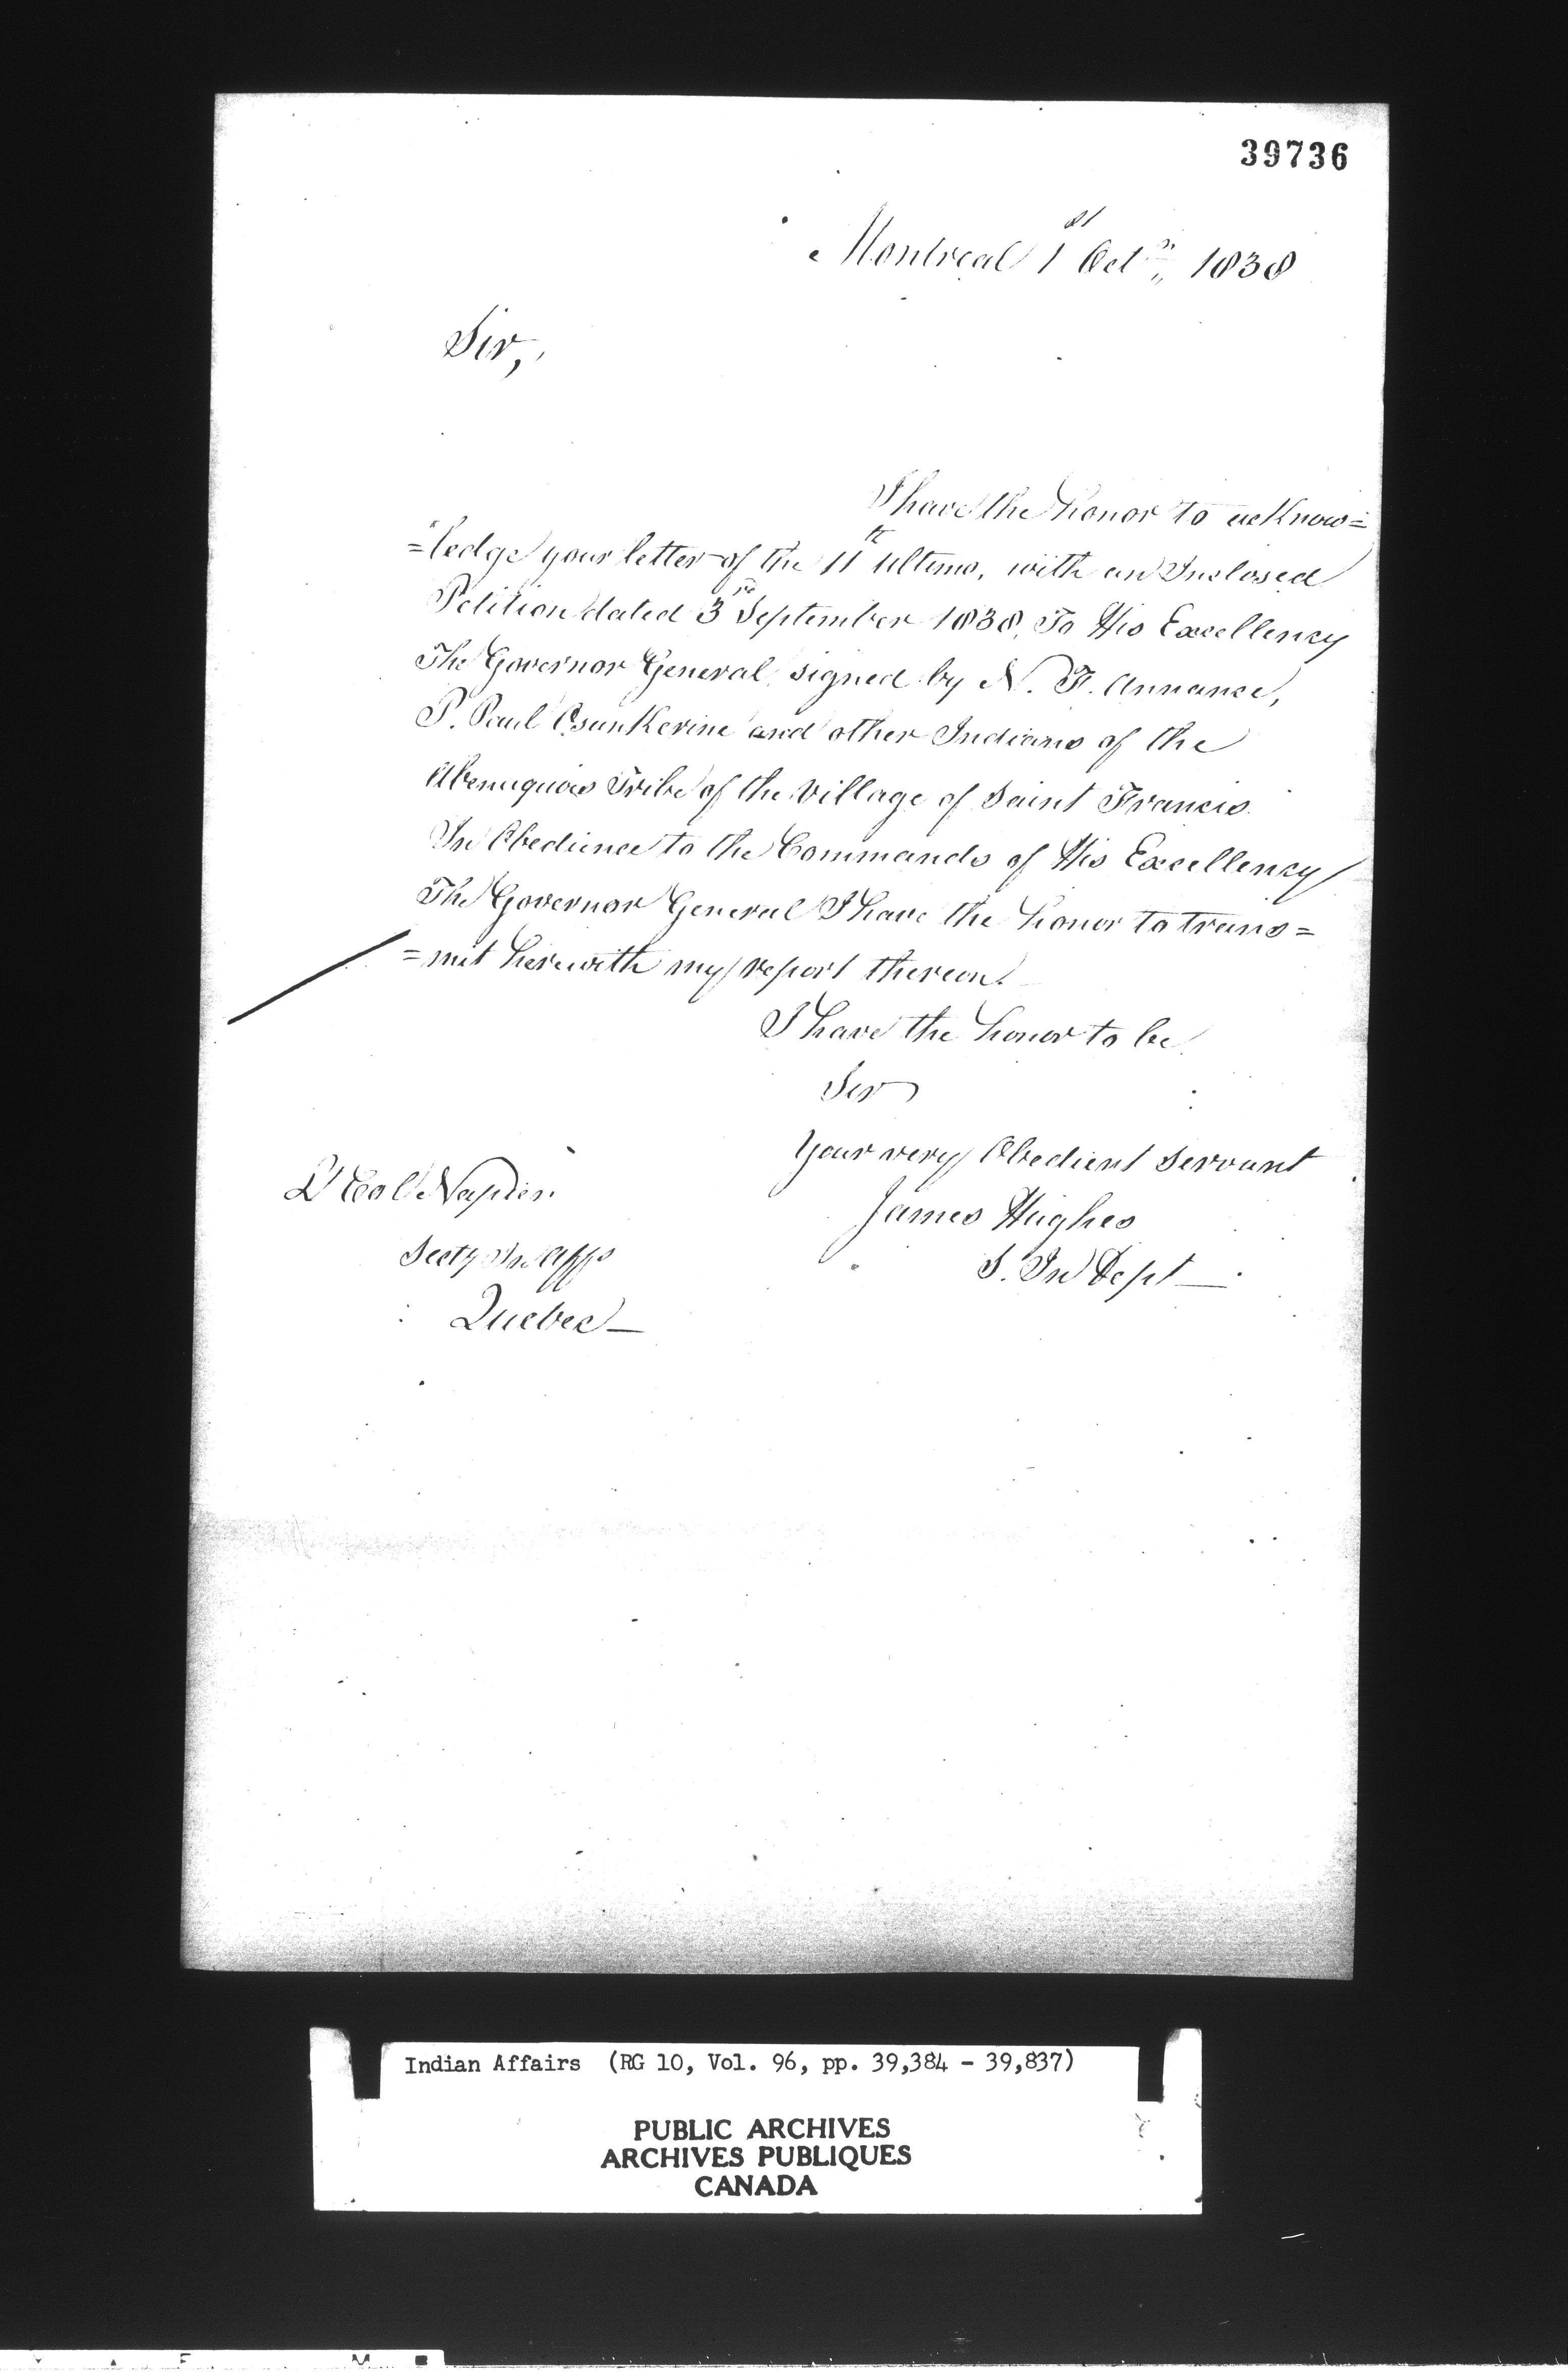 39736
Montreal 1st Octr 1838
Sir,
I have the honor to acknow=
=ledge your letter of the 11th Ultimo, with an Inclosed
Petition dated 3rd September 1838, To His Excellency
The Governor General, signed by N. F. Annance,
P. Paul Osunkerine and other Indians of the
Abenuquois Tribe of the Village of Saint Francis.
In Obedience to the Commands of His Excellency
The Governor General I have the honor to trans=
=mit herewith my report thereon.
I have the honor to be
Sir
Your very Obedient Servant
James Hughes
S. In Dept
Lt Col Napier
Secty In Affs
Quebec
Indian Affairs (RG 10, Vol. 96, pp. 39,384 - 39,837)
PUBLIC ARCHIVES
ARCHIVES PUBLIQUES
CANADA